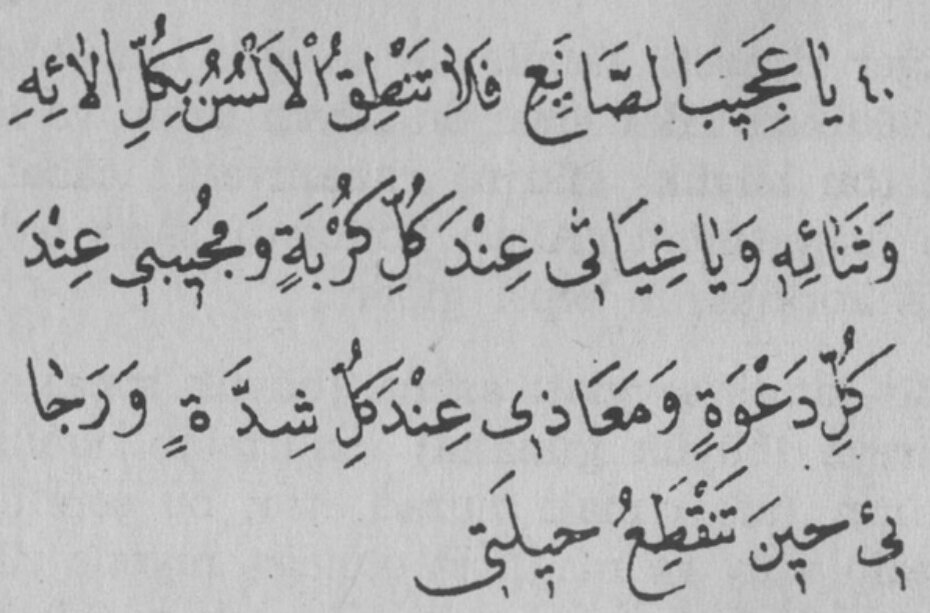 ٤٠ يَا عَجِيبَ الصَّانِعِ فَلَا تَنْطِقُ اْلاَلْسُنُ بِكُلِّ اٰلاَئِهِ
وَثَنَائِهِ وَيَا غِيَاثِى عِنْدَ كُلِّ كُرْبَةٍ وَمُجِيبِى عِنْدَ
كُلِّ دَعْوَةٍ وَمَعَاذِى عِنْدَ كُلِّ شِدَّةٍ وَرَجَا
ئِى حِينَ تَنْقَطِعُ حِيلَتِى